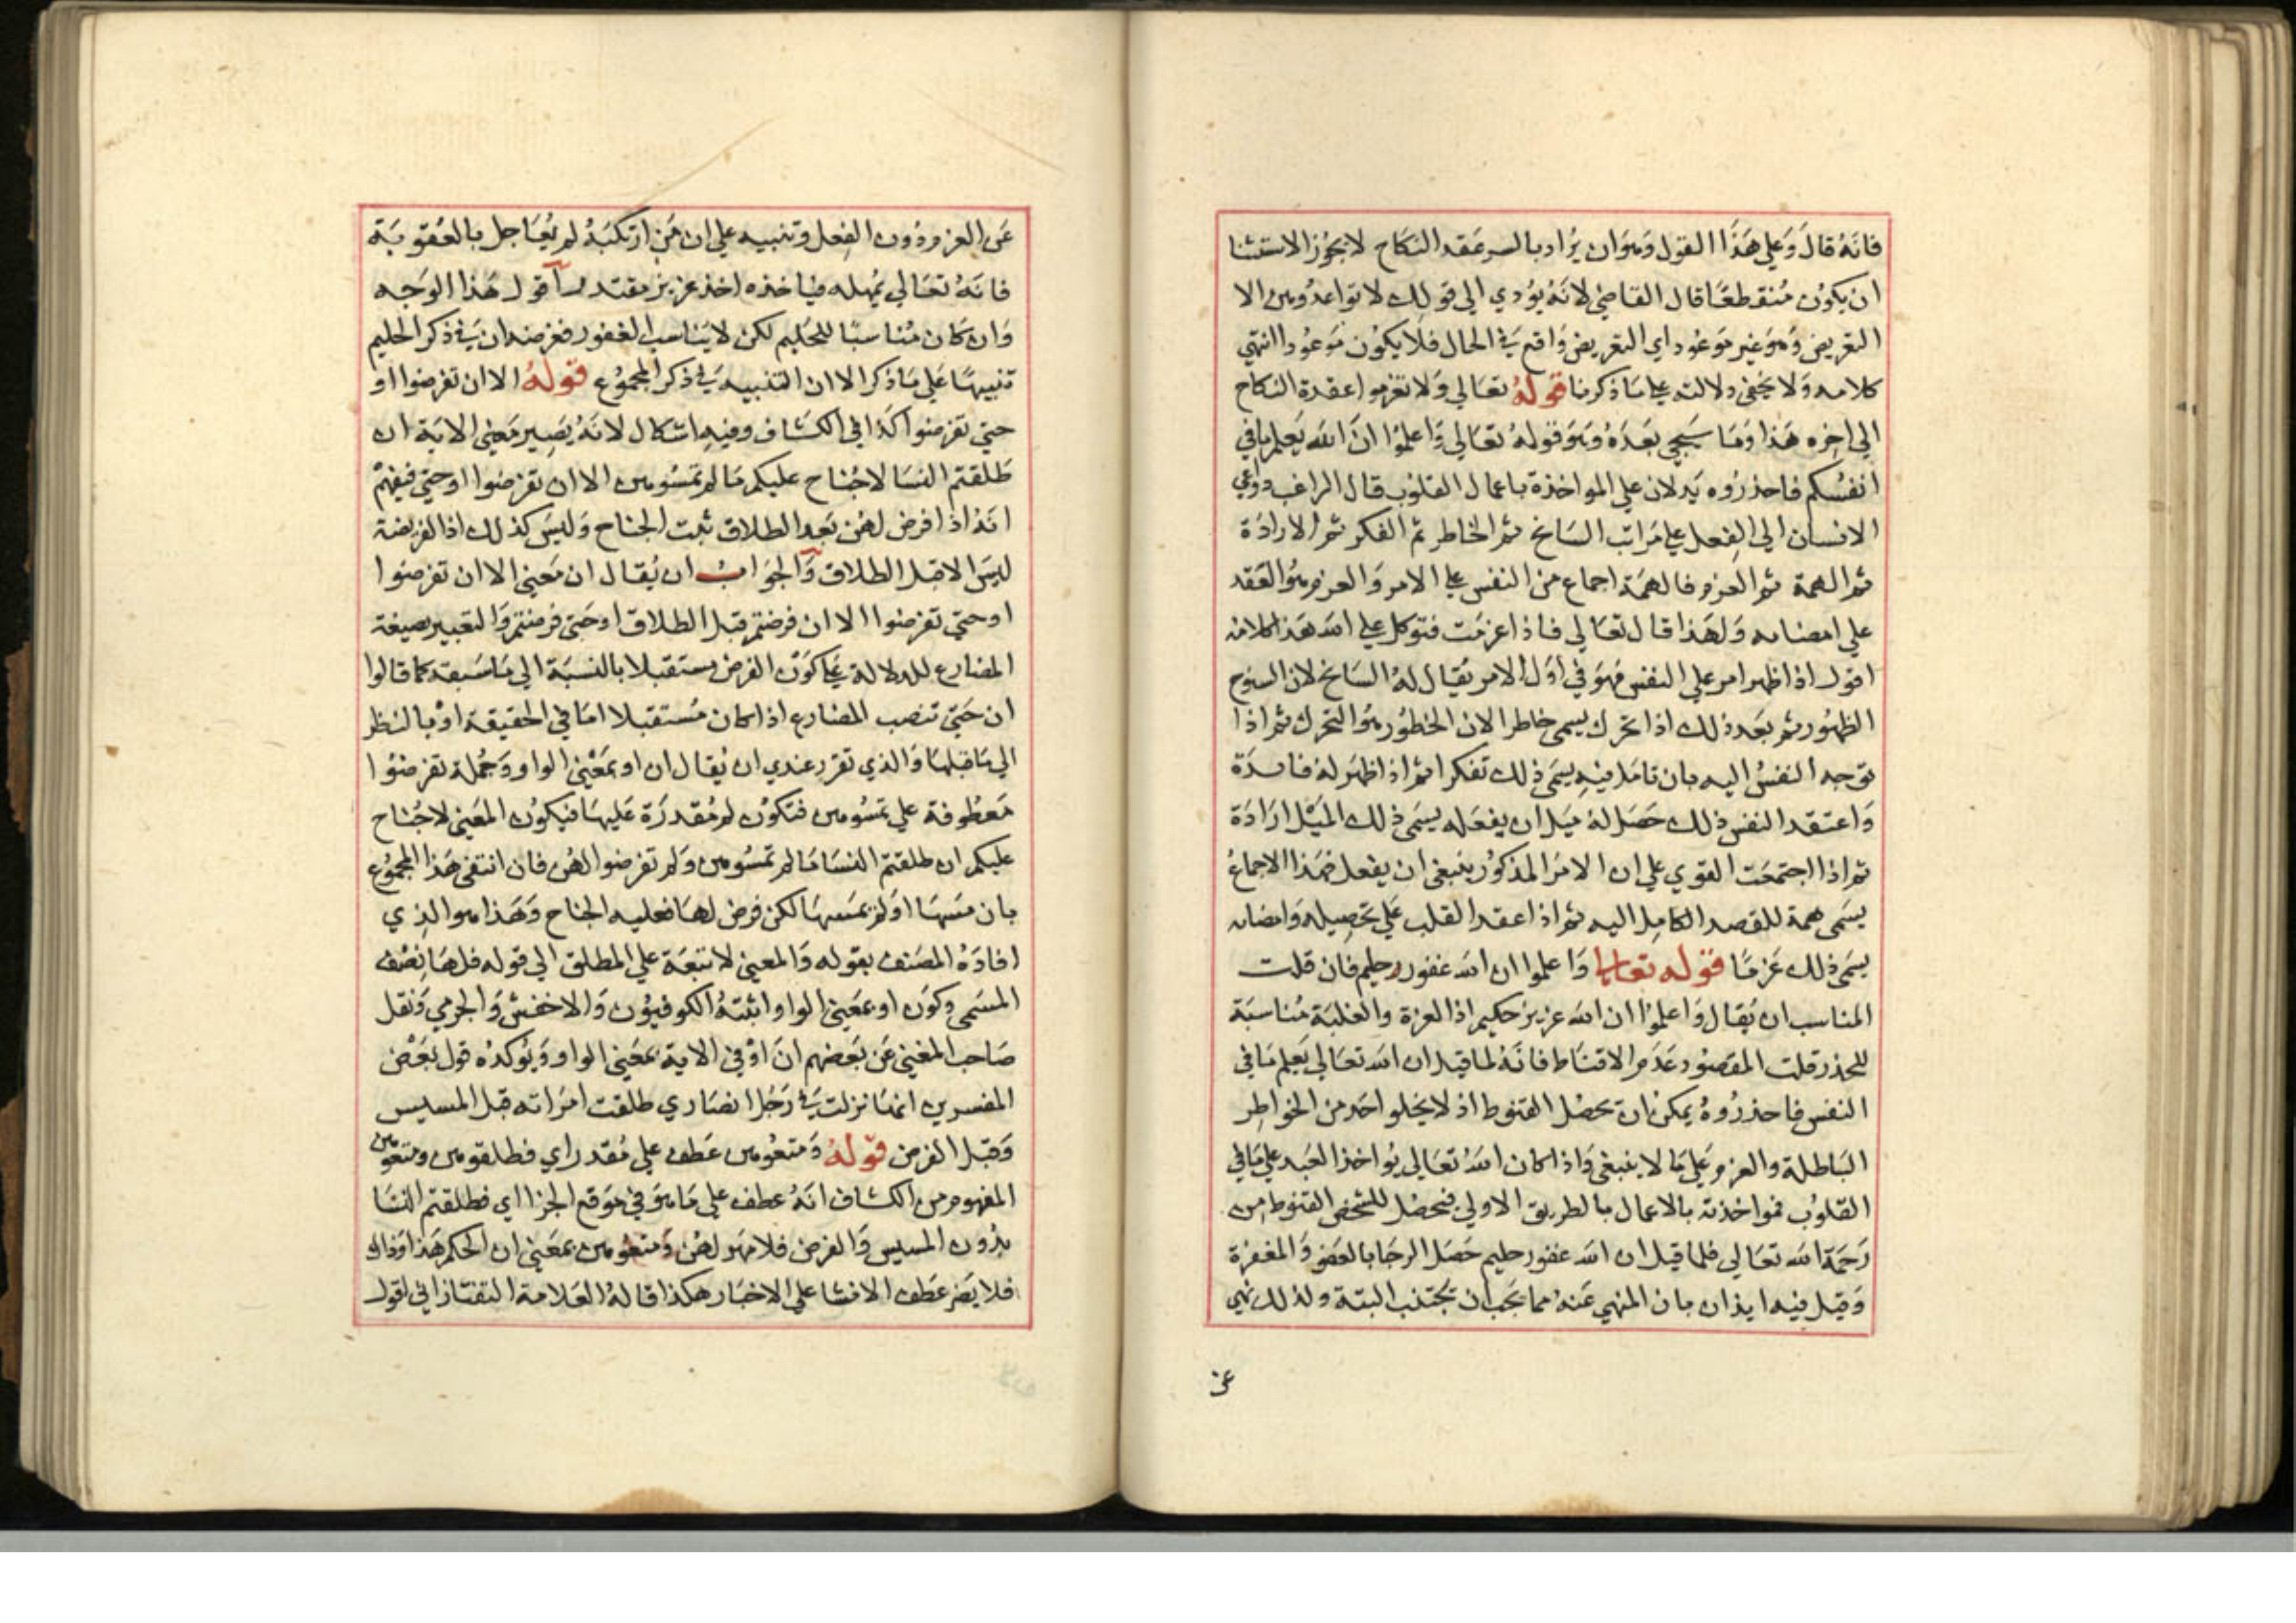 فانه قال وعلي هذا القول وهو ان يراد بالسر عقد النكاح لا يجوز الاستثنا
ان يكون منقطعا قال القاضي لانه يؤدي الي قولك لا تواعدوهن الا
التعريض وهو غير موعود اي التعريض واقع في الحال فلا يكون موعودا انتهي
كلامه ولا يخفي دلالته علي ما ذكرنا قوله تعالي ولا تعزموا عقدة النكاح
الي اخره هذا وما سيجي بعده وهو قوله تعالي واعلموا ان الله يعلم ما في
انفسكم فاحذروه يدلان علي المواخذة باعمال القلوب قال الراغب دواعي
الانسان الي الفعل علي مراتب السانح ثم الخاطر ثم الفكر ثم الارادة
ثم الهمة ثم العزم فالهمة اجماع من النفس علي الامر والعزم هو العقد
علي امضايه ولهذا قال تعالي فاذا عزمت فتوكل علي الله هذا كلامه
اقول اذا ظهر امر علي النفس فهو في اول الامر يقال له السانح لان السنوح
الظهور ثم بعد ذلك اذا تحرك يسمي خاطرا لان الخطور هو التحرك ثم اذا
توجه النفس اليه بان تامل فيه يسمي ذلك تفكرا ثم اذا ظهر له فايدة
واعتقد النفس ذلك حصل له ميل ان يفعله يسمي ذلك الميل ارادة
ثم اذا اجتمعت القوي علي ان الامر المذكور ينبغي ان يفعل فهذا الاجماع
يسمي همة للقصد الكامل اليه ثم اذا عقد القلب علي تحصيله وامضايه
يسمي ذلك عزما قوله تعالي واعلموا ان الله غفور حليم فان قلت
المناسب ان يقال واعلموا ان الله عزيز حكيم اذ العزة والغلبة مناسبة
للحذر قلت المقصود عدم الاقناط فانه لما قيل ان الله تعالي يعلم ما في
النفس فاحذروه يمكن ان يحصل القنوط اذ لا يخلو احد من الخواطر
الباطلة والعزم علي ما لا ينبغي واذا كان الله تعالي يواخذ العبد علي ما في
القلوب فمواخذته بالاعمال بالطريق الاولي فيحصل للشخص القنوط من
رحمة الله تعالي فلما قيل ان الله غفور حليم حصل الرجا بالعفو والمغفرة
وقيل فيه ايذان بان المنهي عنه مما يجب ان يجتنب البتة ولذلك نهي
عن
عن العزم دون الفعل وتنبيه علي ان من ارتكبه لم يعاجل بالعقوبة
فانه تعالي يمهله فياخذه اخذ عزيز مقتدر اقول هذا الوجه
وان كان مناسبا للحليم لكن لا يناسب الغفور فغرضه ان في ذكر الحليم
تنبيها علي ما ذكر الا ان التنبيه في ذكر المجموع قوله الا ان تفرضوا او
حتي تفرضوا كذا في الكشاف وفيه اشكال لانه يصير معني الاية ان
طلقتم النسا لا جناح عليكم ما لم تمسوهن الا ان تفرضوا او حتي فيفهم
انه اذا فرض لهن بعد الطلاق ثبت الجناح وليس كذلك اذ الفريضة
ليس الا قبل الطلاق والجواب ان يقال ان معني الا ان تفرضوا
او حتي تفرضوا الا ان فرضتم قبل الطلاق او حتي فرضتم والتعبير بصيغة
المضارع للدلالة علي كون الفرض مستقبلا بالنسبة الي ما سبقه كما قالوا
ان حتي تنصب المضارع اذا كان مستقبلا اما في الحقيقة او بالنظر
الي ما قبلها والذي تقرر عندي ان يقال ان او بمعني الواو وجملة تفرضوا
معطوفة علي تمسوهن فتكون لم مقدرة عليها فيكون المعني لا جناح
عليكم ان طلقتم النسا ما لم تمسوهن ولم تفرضوا لهن فان انتفي هذا المجموع
بان مسها او لم يمسها لكن فرض لها فعليه الجناح وهذا هو الذي
افاده المصنف بقوله والمعني لا تبعة علي المطلق الي قوله فلها نصف
المسمي وكون او بمعني الواو اثبته الكوفيون والاخفش والجرمي ونقل
صاحب المغني عن بعضهم ان او في الاية بمعني الواو ويؤكده قول بعض
المفسرين انها نزلت في رجل انصاري طلقت امراته قبل المسيس
وقبل الفرض قوله ومتعوهن عطف علي مقدر اي فطلقوهن ومتعوهن
المفهوم من الكشاف انه عطف علي ما هو في موقع الجزا اي فطلقتم النسا
بدون المسيس والفرض فلا مهر لهن ومتعوهن بمعني ان الحكم هذا وذاك
فلا يضر عطف الانشا علي الاخبار هكذا قاله العلامة التفتازاني اقول